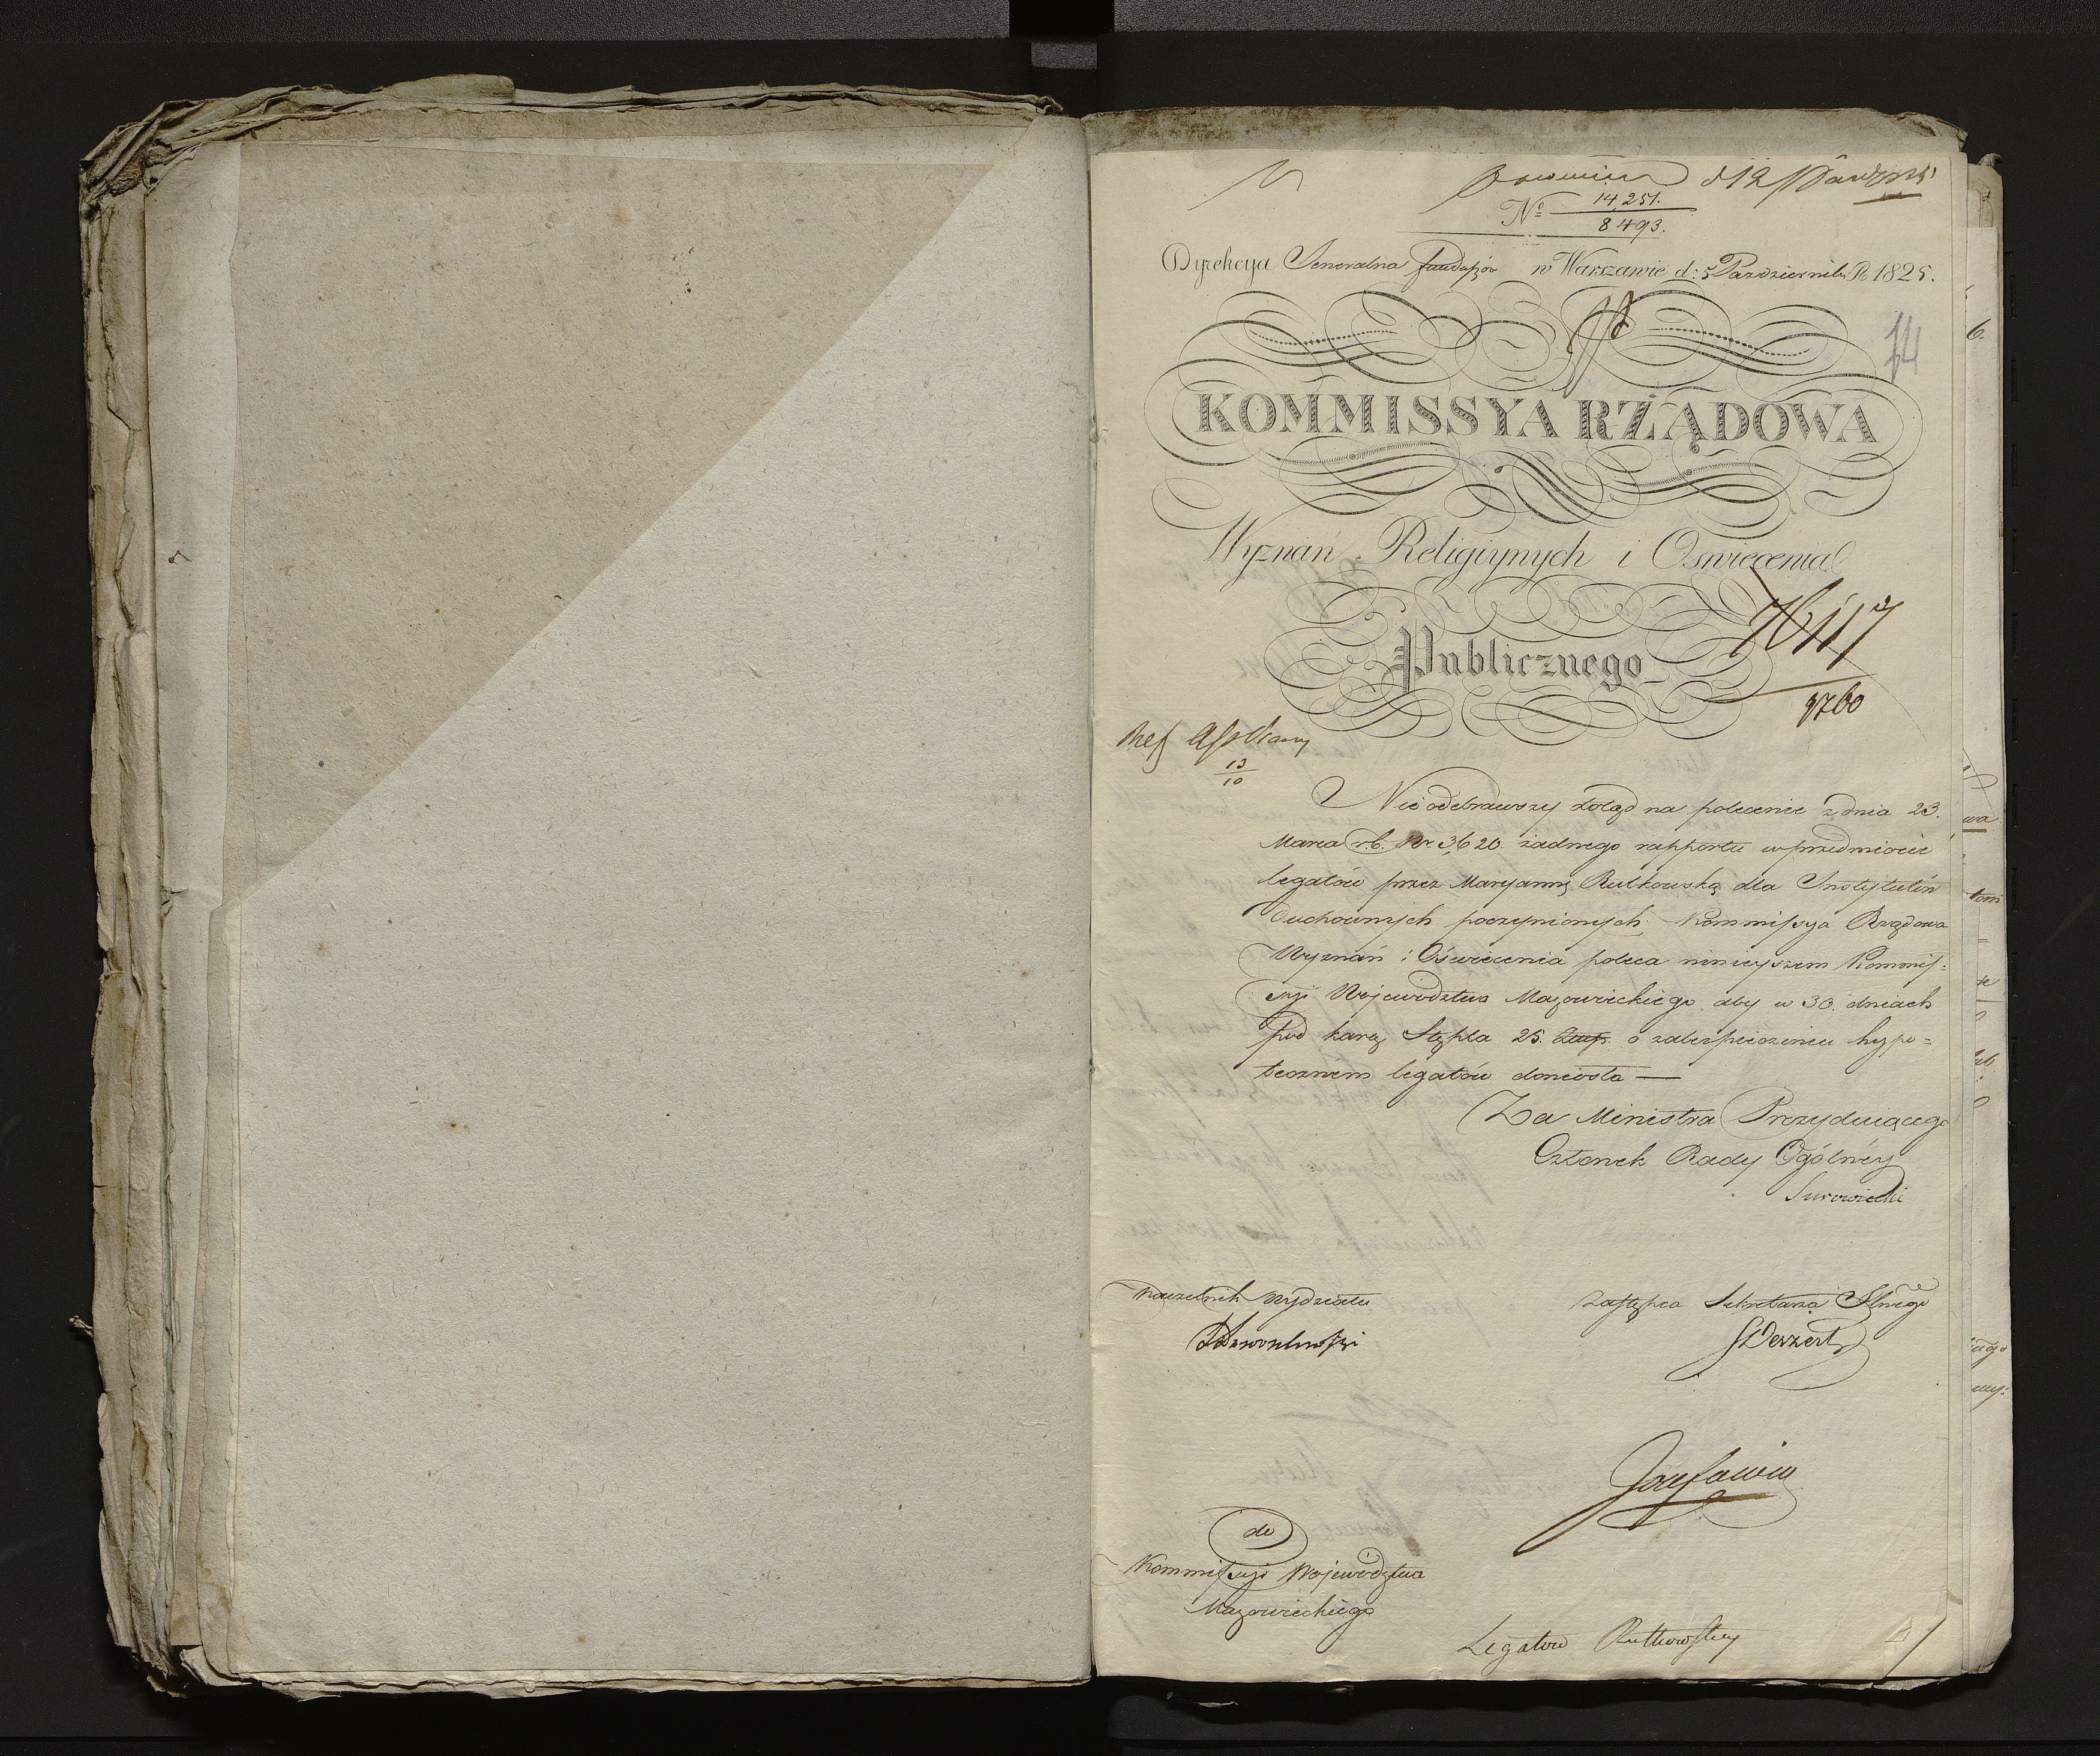 d 12
14,251.
No
8493.
Dyrekcya Generalna Funduszów w Warszawie d: 5 Pazdziernika R 1825.
14
KOMMISSYA RZĄDOWA
Wyznań Religiynych i Oswiecenia
Publicznego
9760
13
10
Nie odebrawszy dotąd na polecenie z dnia 23.
Marca r.b. Nr. 3,620. żadnego rapportu w przedmiocie
legatów przez Maryannę Rutkowską dla Instytutów
Duchownych poczynionych, Kommissya Rządowa
Wyznań i Oświecenia poleca ninieyszem Kommis-
syi Województwa Mazowieckiego aby w 30. dniach
pod karą Stępla 25. Złłp. o zabezpieczeniu hypo=
tecznem legatów doniosła —
Za Ministra Prezyduiącego
Członek Rady Ogólnéy
Surowiecki
Naczelnik Wydziału
Zastępca Sekretarza Glnego
Kommissyi Województwa
do
Mazowieckiego
Legatów Rutkowskiey